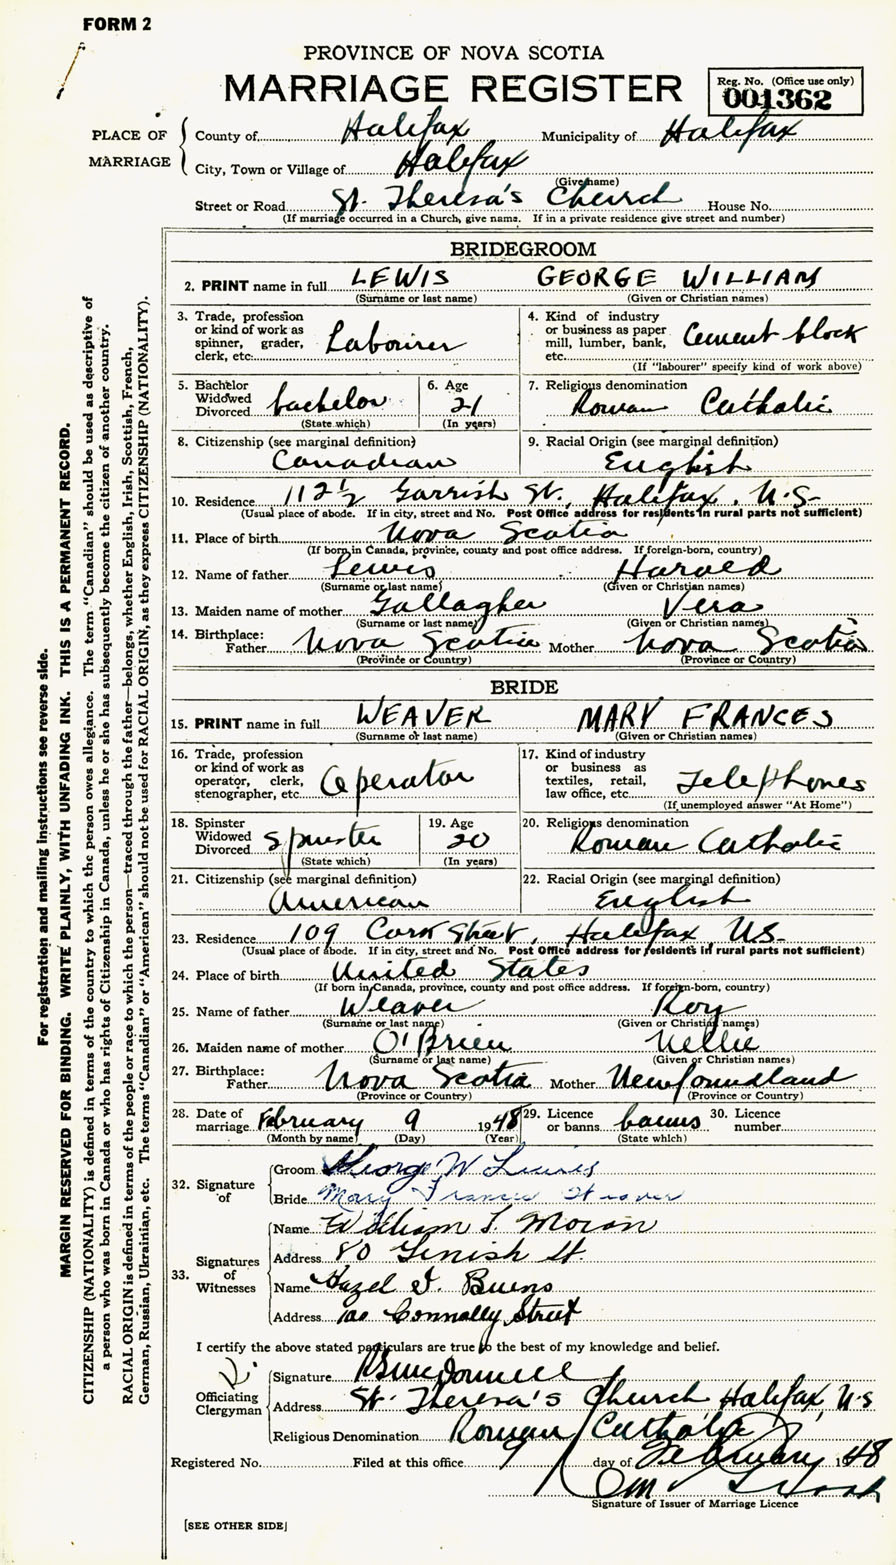 FORM 2
PROVINCE OF NOVA SCOTIA
MARRIAGE REGISTER
Reg. No. (Office use only)
001362
PLACE OF MARRIAGE
County of Halifax Municipality of Halifax
City, Town or Village of Halifax
(Give name)
Street or Road St. Theresa's Church House No.
(If marriage occurred in a Church, give name. If in a private residence give street and number)
BRIDEGROOM
2. PRINT name in full LEWIS GEORGE WILLIAM
(Surname or last name) (Given or Christian names)
3. Trade, profession or kind of work as spinner, grader, clerk, etc. Labourer
4. Kind of industry or business as paper mill, lumber, bank, etc. Cement block
(If "labourer" specify kind of work above)
5. Bachelor Widowed Divorced bachelor
(State which)
6. Age 21
(In years)
7. Religious denomination Roman Catholic
8. Citizenship (see marginal definition)
Canadian
9. Racial Origin (see marginal definition)
English
10. Residence 112½ Garrish St., Halifax, N.S.
(Usual place of abode. If in city, street and No. Post Office address for residents in rural parts not sufficient)
11. Place of birth Nova Scotia
(If born in Canada, province, county and post office address. If foreign-born, country)
12. Name of father Lewis Harold
(Surname or last name) (Given or Christian names)
13. Maiden name of mother Gallagher Vera
(Surname or last name) (Given or Christian names)
14. Birthplace: Father Nova Scotia Mother Nova Scotia
(Province or Country) (Province or Country)
BRIDE
15. PRINT name in full WEAVER MARY FRANCES
(Surname or last name) (Given or Christian names)
16. Trade, profession or kind of work as operator, clerk, stenographer, etc. Operator
17. Kind of industry or business as textiles, retail, law office, etc. Telephones
(If unemployed answer "At Home")
18. Spinster Widowed Divorced Spinster
(State which)
19. Age 20
(In years)
20. Religious denomination Roman Catholic
21. Citizenship (see marginal definition)
American
22. Racial Origin (see marginal definition)
English
23. Residence 109 Cork Street, Halifax N.S.
(Usual place of abode. If in city, street and No. Post Office address for residents in rural parts not sufficient)
24. Place of birth United States
(If born in Canada, province, county and post office address. If foreign-born, country)
25. Name of father Weaver Roy
(Surname or last name) (Given or Christian names)
26. Maiden name of mother O'Brien Nellie
(Surname or last name) (Given or Christian names)
27. Birthplace: Father Nova Scotia Mother Newfoundland
(Province or Country) (Province or Country)
28. Date of marriage February 9 1948
(Month by name) (Day) (Year)
29. Licence or banns banns
(State which)
30. Licence number
32. Signature of
Groom George W Lewis
Bride Mary Frances Weaver
33. Signatures of Witnesses
Name William J. Moran
Address 80 St.
Name Hazel Burns
Address Connolly Street
I certify the above stated particulars are true to the best of my knowledge and belief.
Officiating Clergyman
Signature
Address St. Theresa's Church Halifax, N.S
Religious Denomination Roman Catholic
Registered No. Filed at this office 9 day of February 1948
Signature of Issuer of Marriage Licence
[SEE OTHER SIDE]
For registration and mailing instructions see reverse side.
MARGIN RESERVED FOR BINDING. WRITE PLAINLY, WITH UNFADING INK. THIS IS A PERMANENT RECORD.
CITIZENSHIP (NATIONALITY) is defined in terms of the country to which the person owes allegiance. The term "Canadian" should be used as descriptive of
a person who was born in Canada or who has rights of Citizenship in Canada, unless he or she has subsequently become the citizen of another country.
RACIAL ORIGIN is defined in terms of the people or race to which the person—traced through the father—belongs, whether English, Irish, Scottish, French,
German, Russian, Ukrainian, etc. The terms "Canadian" or "American" should not be used for RACIAL ORIGIN, as they express CITIZENSHIP (NATIONALITY).